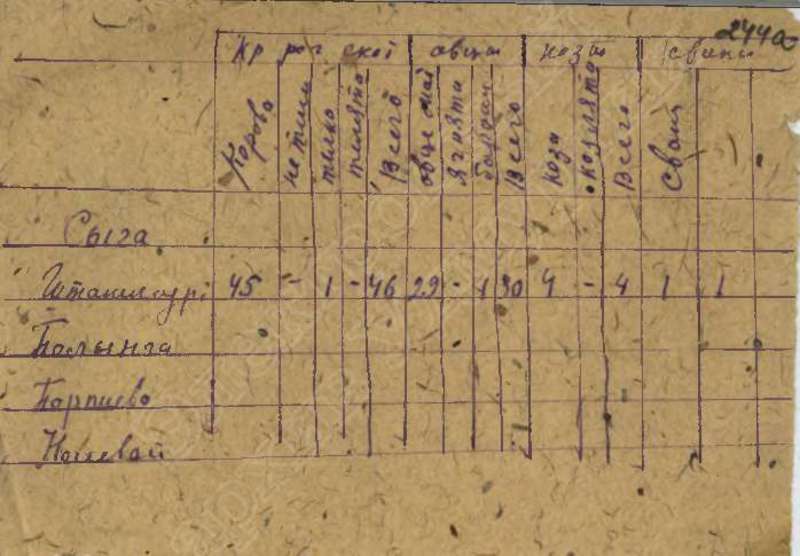 244об
Кр рог скот овцы козы свиньи
Корова нетели телко телята Всего овце ягнята баран Всего коза козлята Всего свин
Сыга
45 - 1 - 46 29 - 1 30 4 - 4 1 1
Полынга
Парпиево
Кочевай